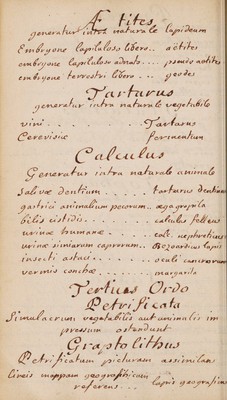 Ætites
generatur intra naturale lapideum
Embryone lapiluloso libero .. aëtites
embryone lapiluloso adnato .... pseudo aëtites
embryone terrestri libero ... geodes
Tartarus
generatur intra naturale vegetabile
vini . . . . . . . . Tartarus
Cerevisiæ fermentum
Calculus
Generatur intra naturale animale
salivæ dentium . . . . . . tartarus dentium
gastrici animalium pecorum .. ægagropila
bilis cistidis . . . . . . . calculus felleus
urinæ humanæ . . . . . calc. nephreticus
urinæ simiarum caprorum .. Bezoardius lapis
insecti astaci . . . . . . oculi cancrorum
vermis conchæ . . . . . . margarita
Tertius Ordo
Petrificata
Simulacrum vegetabilis aut animalis im
pressum ostendunt
Graptolithus
Petrificatum picturam assimilans
lineis mappam geographicam
referens ... lapis geographicus